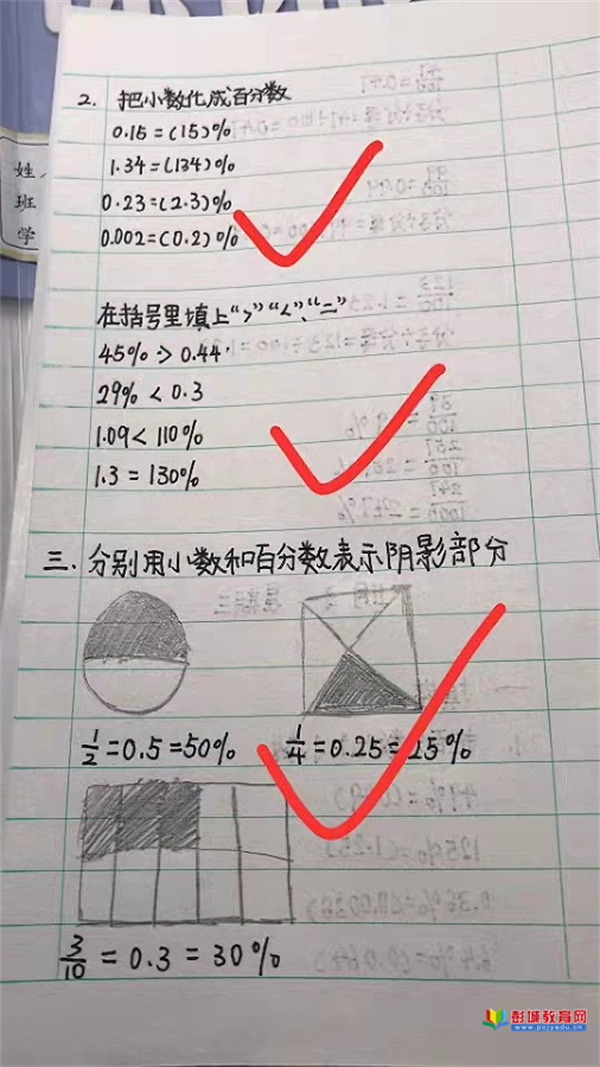 姓
班
学
2. 把小数化成百分数
0.15=(15)%
1.34=(134)%
0.23=(2.3)%
0.002=(0.2)%
在括号里填上“>”“<”、“=”
45% > 0.44
29% < 0.3
1.09 < 110%
1.3 = 130%
三. 分别用小数和百分数表示阴影部分
1/2=0.5=50% 1/4=0.25=25%
3/10 = 0.3 = 30%
彭城教育网
www.pcjyedu.cn